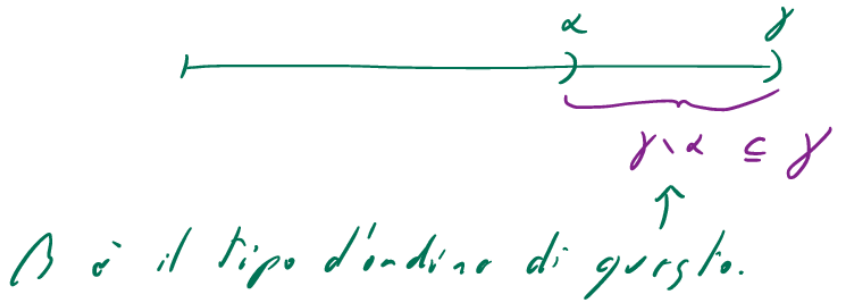 α γ
γ∖α ⊆ γ
β è il tipo d'ordine di questo.